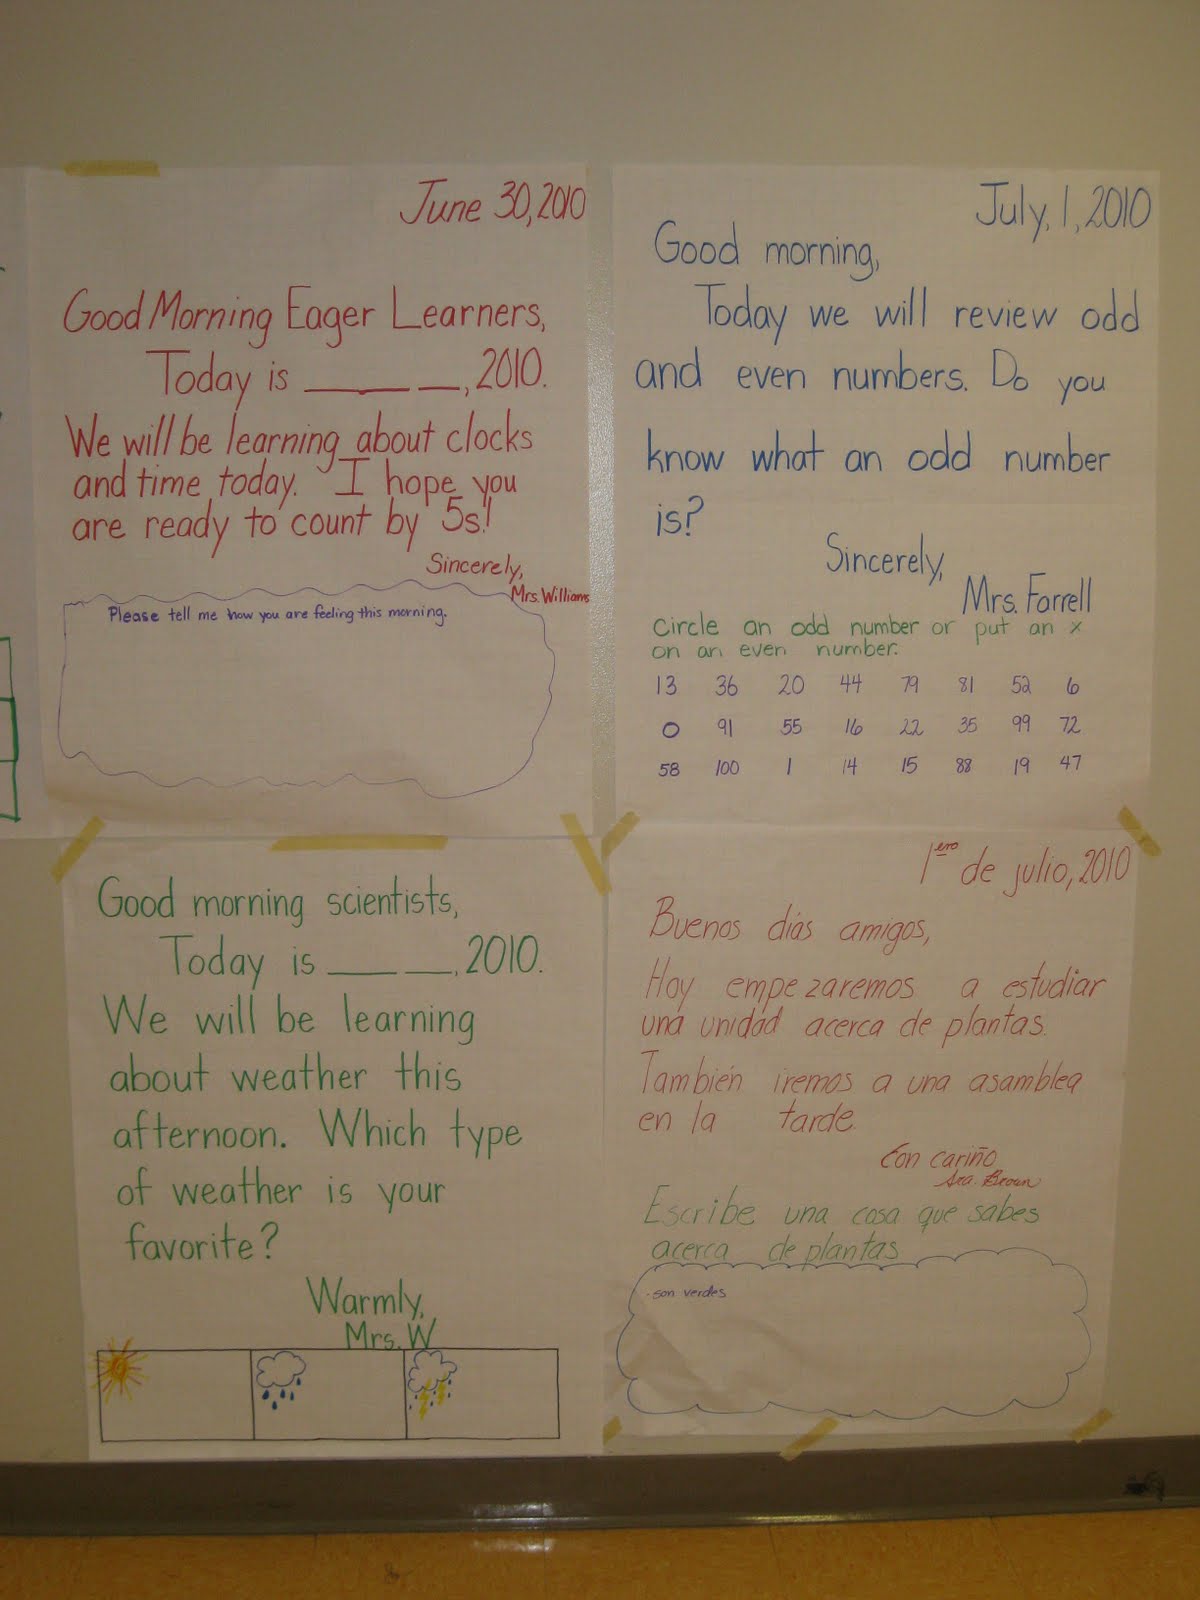 June 30, 2010
Good Morning Eager Learners,
Today is ____ __, 2010.
We will be learning about clocks
and time today. I hope you
are ready to count by 5s!
Sincerely,
Mrs. Williams
Please tell me how you are feeling this morning.
July, 1, 2010
Good morning,
Today we will review odd
and even numbers. Do you
know what an odd number
is?
Sincerely,
Mrs. Farrell
Circle an odd number or put an x
on an even number.
13 36 20 44 79 81 52 6
0 91 55 16 22 35 99 72
58 100 1 14 15 88 19 47
Good morning scientists,
Today is ___ __, 2010.
We will be learning
about weather this
afternoon. Which type
of weather is your
favorite?
Warmly,
Mrs. W
1ero de julio, 2010
Buenos días amigos,
Hoy empezaremos a estudiar
una unidad acerca de plantas.
También iremos a una asamblea
en la tarde.
Con cariño
Sra. Brown
Escribe una cosa que sabes
acerca de plantas
-son verdes